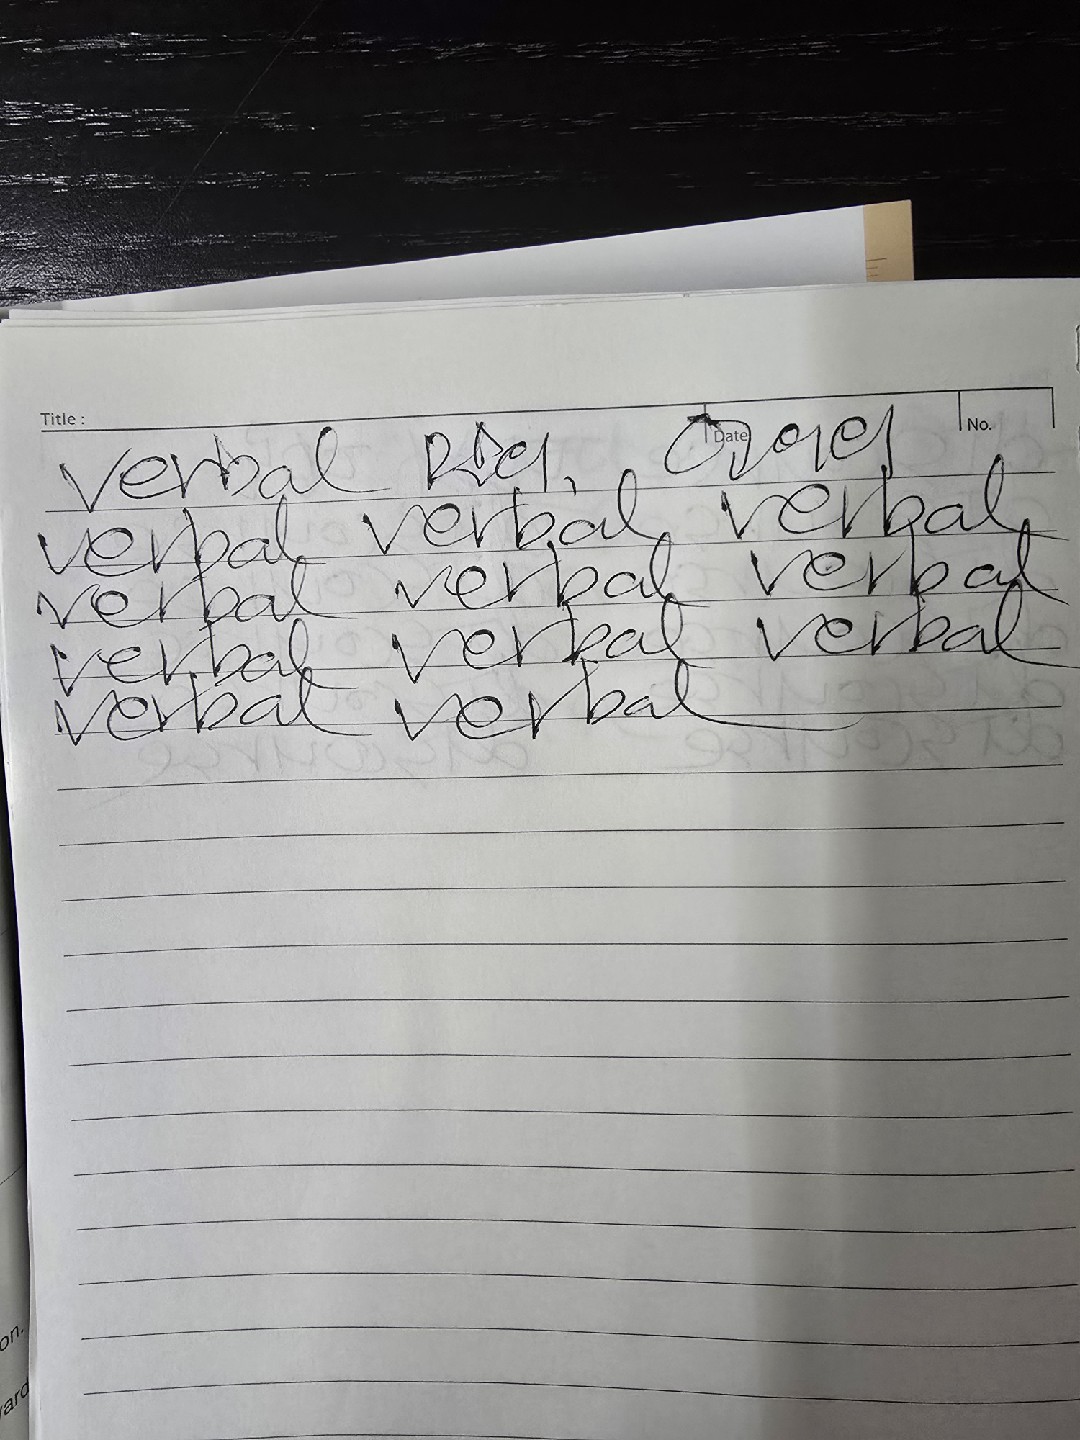 Title :
Date
No.
verbal
verbal verbal verbal
verbal verbal verbal
verbal verbal verbal
verbal verbal
on.